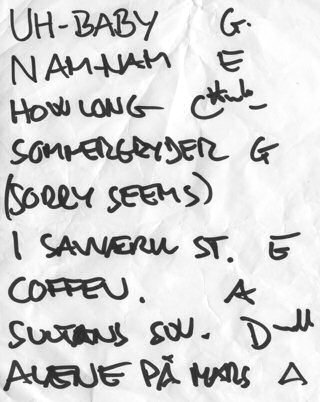 UH-BABY G.
NAM-NAM E
HOW LONG C#moll
SOMMERGRYDER G
(SORRY SEEMS)
I SAVVÆRK ST. E
COFFEN. A
SULTANS SW. Dmoll
ALENE PÅ MARS A